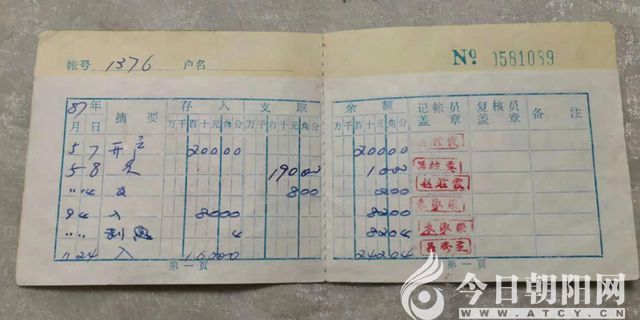 帐号 1376 户名 № 0581089
87年 摘要 存入 支取 余额 记帐员盖章 复核员盖章 备注
月 日 万千百十元角分 万千百十元角分 万千百十元角分
5 7 开 20000 20000
5 8 支 19000 1000
〃 14 支 800 200
9 4 入 8000 8200 
〃 〃 利息 4 8204
11 24 入 16000 24204
赵桂霞
第一页 第一页
今日朝阳网
WWW.ATCY.CN